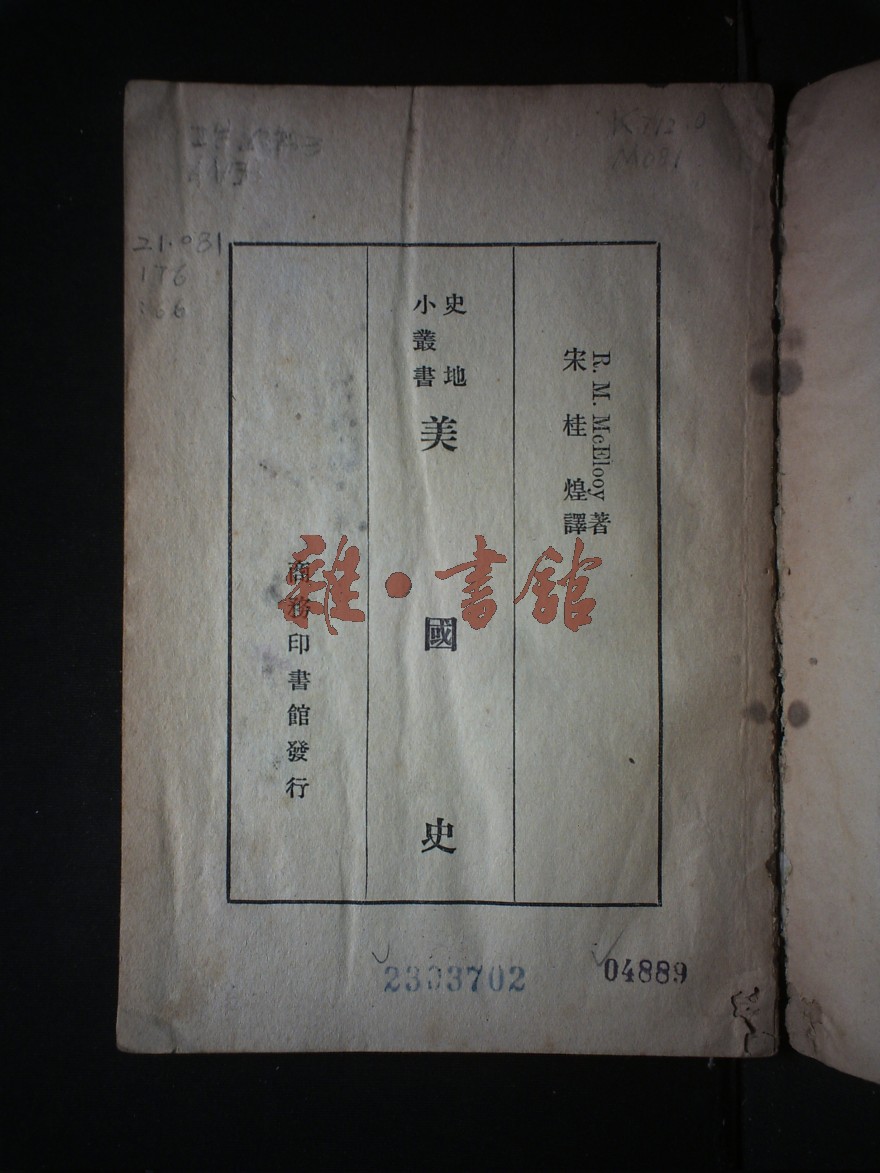 K712.0
M081
21.081
176
R. M. McElooy著
宋桂煌譯
史地
小叢書
美國史
商務印書館發行
雜·書館
2303702
04889